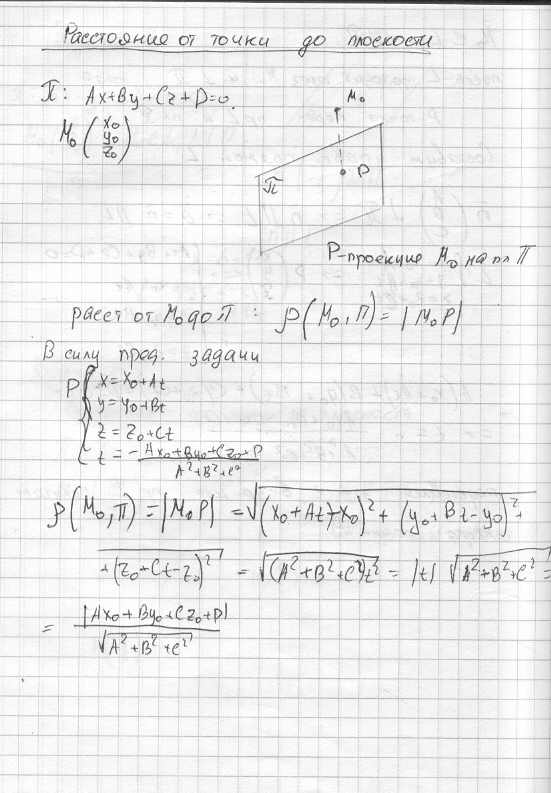 Расстояние от точки до плоскости
π: Ax+By+Cz+D=0.
M₀ (x₀ y₀ z₀)
M₀
P
π
P-проекция M₀ на пл П
расст от M₀ до П : ρ(M₀, П) = |M₀P|
В силу пред. задачи
P { x = x₀+At
y = y₀+Bt
z = z₀+Ct
t = - (Ax₀+By₀+Cz₀+D)/(A²+B²+C²)
ρ(M₀, П) = |M₀P| = √((x₀+At-x₀)² + (y₀+Bt-y₀)²+
+(z₀+Ct-z₀)²) = √((A²+B²+C²)t²) = |t| √(A²+B²+C²) =
= |Ax₀+By₀+Cz₀+D| / √(A²+B²+C²)